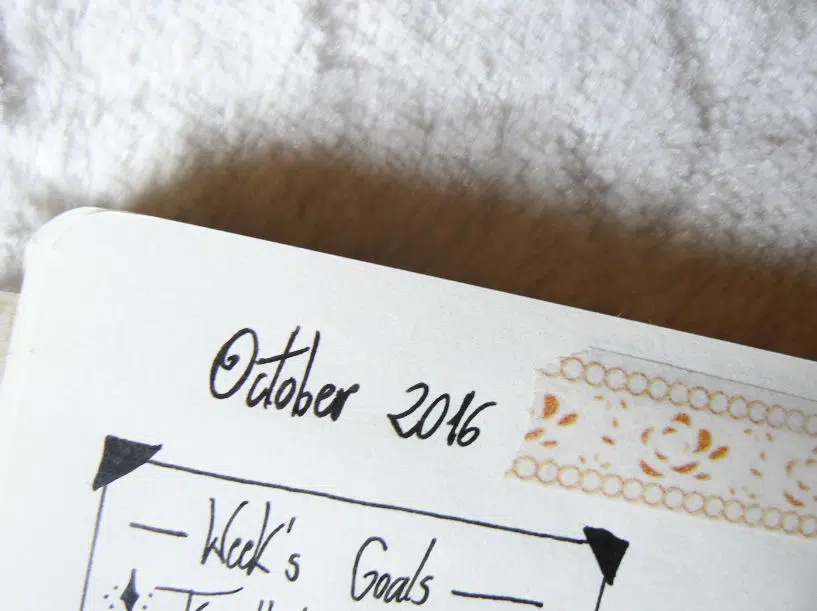 October 2016
Week's Goals